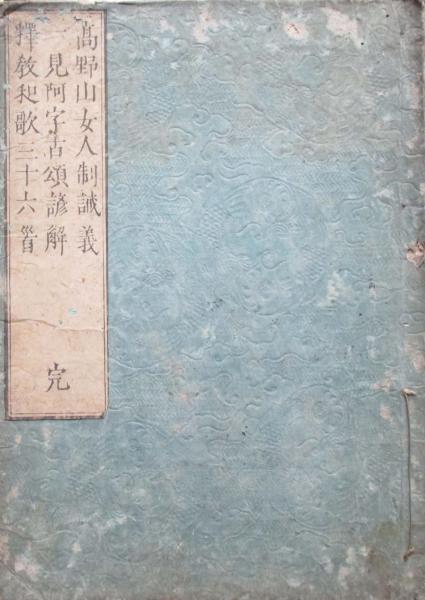 高野山女人制誡義
一見阿字古頌諺解
釋敎和歌三十六首
完